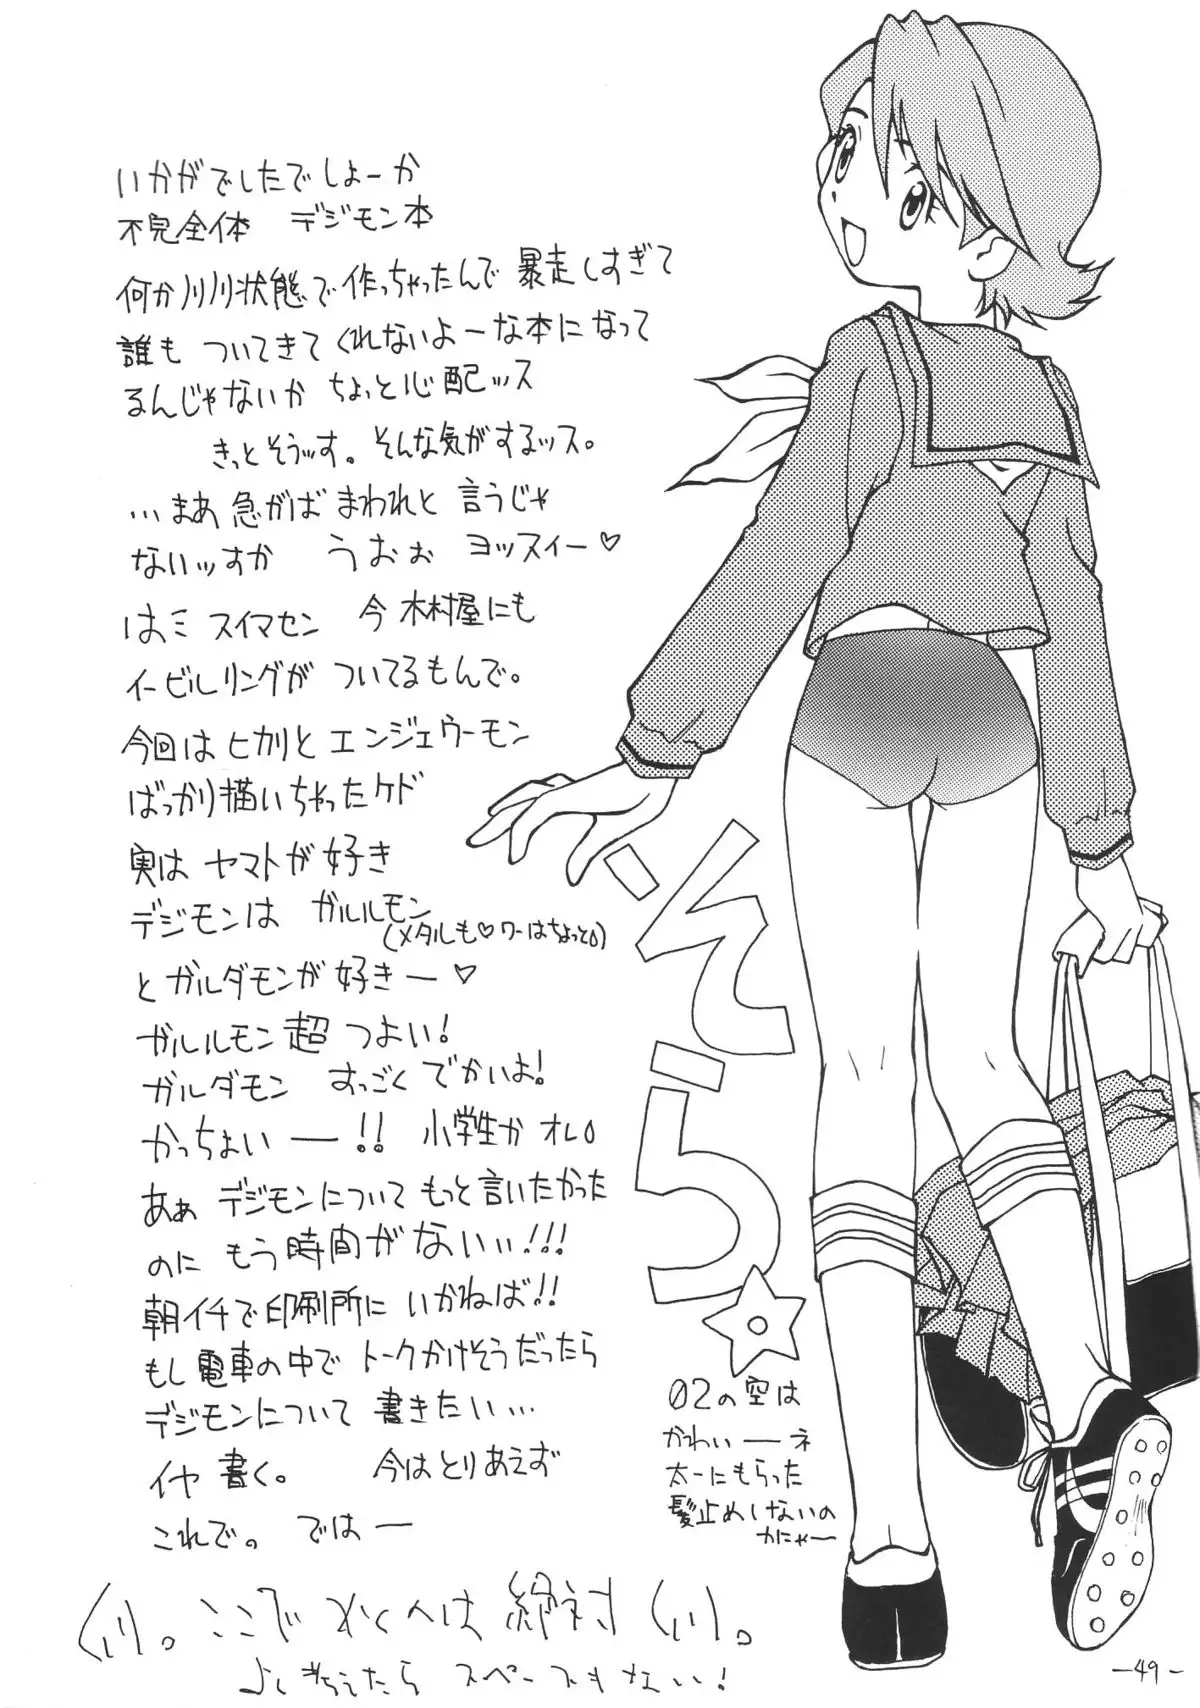 いかがでしたでしょーか
不完全体 デジモン本
何かノリノリ状態で作っちゃったんで 暴走しすぎて
誰も ついてきてくれないよーな本になって
るんじゃないか ちょっと心配ッス
きっとそうッす。そんな気がするッス。
…まあ 急がば まわれと 言うじゃ
ないッすか うおぉ ヨッスィー♡
はミ スイマセン 今 木村屋にも
イービルリングが ついてるもんで。
今回は ヒカリと エンジェウーモン
ばっかり描いちゃったケド
実は ヤマトが 好き
デジモンは ガルルモン
(メタルも♡ワーはちょっと)
とガルダモンが 好きー♡
ガルルモン 超 つよい!
ガルダモン すっごく でかいよ!
かっちょいー!! 小学生か オレ
あぁ デジモンについて もっと言いたかった
のに もう時間がないぃ!!!
朝イチで印刷所に いかねば!!
もし電車の中で トークかけそうだったら
デジモンについて 書きたい…
イヤ 書く。 今はとりあえず
これで。 ではー
ここで は絶対
よく考えたら スペースもない!
そら
02の空は
かわいーネ
太一にもらった
髪止めしないの
かにゃー
-49-